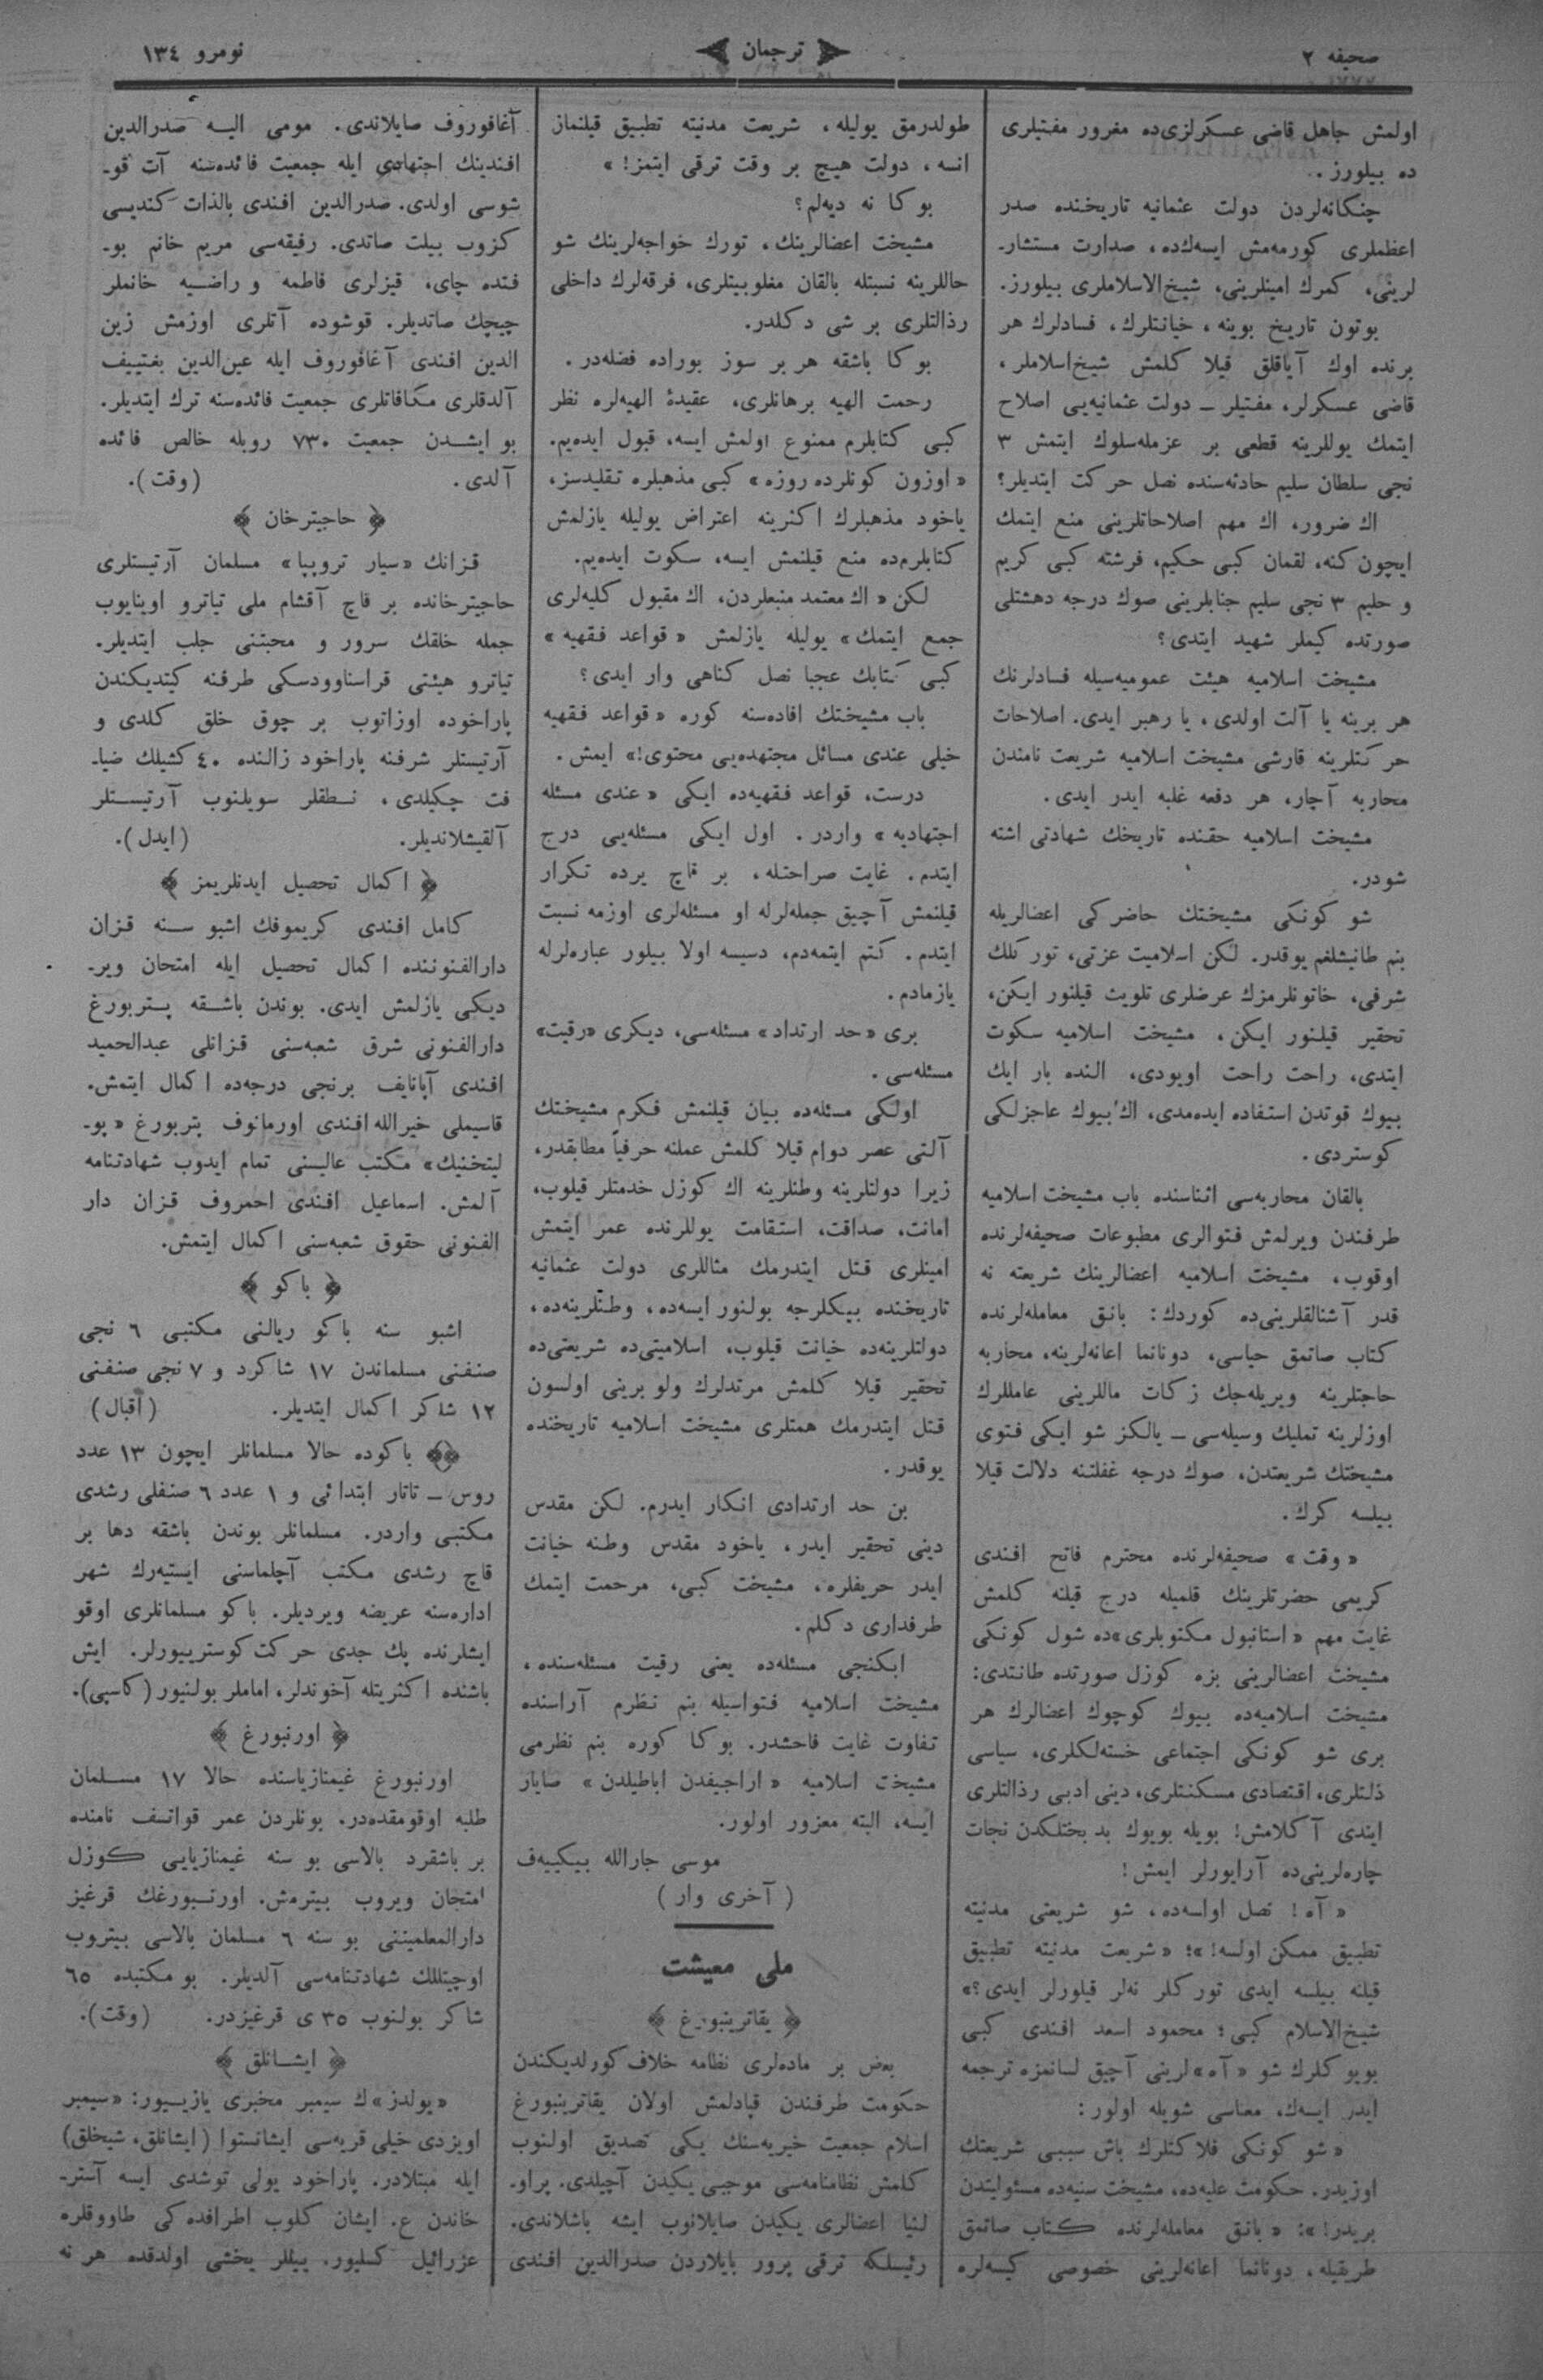 صحيفه ٢
ترجمان
نومرو ١٣٤
اولمش جاهل قاضی عسكرلری‌ده مغرور مفتيلری
ده بيلورز.
چنكانه‌لردن دولت عثمانيه تاريخنده صدر
اعظملری كورمه‌مش ايسه‌ك‌ده، صدارت مستشار-
لرينی، كمرك امينلرينی، شيخ‌الاسلاملری بيلورز.
بوتون تاريخ بوينه، خيانتلرك، فسادلرك هر
برنده اوك آياقلق قيلا كلمش شيخ‌اسلاملر،
قاضی عسكرلر، مفتيلر ــ دولت عثمانيه‌يی اصلاح
ايتمك يوللرينه قطعی بر عزمله‌سلوك ايتمش ٣
نجی سلطان سليم حادثه‌سنده نصل حركت ايتديلر؟
اك ضرور، اك مهم اصلاحاتلرينی منع ايتمك
ايچون كنه، لقمان كبی حكيم، فرشته كبی كريم
و حليم ٣ نجی سليم جنابلرينی صوك درجه دهشتلی
صورتده كيملر شهيد ايتدی؟
مشيخت اسلاميه هيئت عموميه‌سيله فسادلرنك
هر برينه يا آلت اولدی، يا رهبر ايدی. اصلاحات
حركتلرينه قارشی مشيخت اسلاميه شريعت نامندن
محاربه آچار، هر دفعه غلبه ايدر ايدی.
مشيخت اسلاميه حقنده تاريخك شهادتی اشته
شودر.
شو كونكی مشيختك حاضركی اعضالريله
بنم طانيشلغم يوقدر. لكن اسلاميت عزتی، توركلك
شرفی، خاتونلرمزك عرضلری تلويث قيلنور ايكن،
تحقير قيلنور ايكن، مشيخت اسلاميه سكوت
ايتدی، راحت راحت اويودی، النده بار ايك
بيوك قوتدن استفاده ايده‌مدی، اك بيوك عاجزلكی
كوستردی.
بالقان محاربه‌سی اثناسنده باب مشيخت اسلاميه
طرفندن ويرلمش فتوالری مطبوعات صحيفه‌لرنده
اوقوب، مشيخت اسلاميه اعضالرينك شريعته نه
قدر آشنالقلرينی‌ده كوردك: بانق معامله‌لرنده
كتاب صاتمق حياسی، دونانما اعانه‌لرينه، محاربه
حاجتلرينه ويريله‌جك زكات ماللرينی عامللرك
اوزلرينه تمليك وسيله‌سی ــ يالكز شو ايكی فتوی
مشيختك شريعتدن، صوك درجه غفلتنه دلالت قيلا
بيلسه كرك.
«وقت» صحيفه‌لرنده محترم فاتح افندی
كريمی حضرتلرينك قلميله درج قيلنه كلمش
غايت مهم «استانبول مكتوبلری»ده شول كونكی
مشيخت اعضالرينی بزه كوزل صورتده طانتدی:
مشيخت اسلاميه‌ده بيوك كوچوك اعضالرك هر
بری شو كونكی اجتماعی خسته‌لكلری، سياسی
ذلتلری، اقتصادی مسكنتلری، دينی ادبی رذالتلری
ايندی آكلامش! بويله بويوك بد بختلكدن نجات
چاره‌لرينی‌ده آرايورلر ايمش!
«آه! نصل اولسه‌ده، شو شريعتی مدنيته
تطبيق ممكن اولسه!»؛ «شريعت مدنيته تطبيق
قيلنه بيلسه ايدی توركلر نه‌لر قيلورلر ايدی؟»
شيخ‌الاسلام كبی؛ محمود اسعد افندی كبی
بويوكلرك شو «آه»لرينی آچيق لسانمزه ترجمه
ايدر ايسه‌ك، معناسی شويله اولور:
«شو كونكی فلاكتلرك باش سببی شريعتك
اوزيدر. حكومت عليه‌ده، مشيخت سنيه‌ده مسئوليتدن
بريدر!»؛ «بانق معامله‌لرنده كتاب صاتمق
طريقيله، دونانما اعانه‌لرينی خصوصی كيسه‌لره
طولدرمق يوليله، شريعت مدنيته تطبيق قيلنماز
انسه، دولت هيچ بر وقت ترقی ايتمز!»
بوكا نه ديه‌لم؟
مشيخت اعضالرينك، تورك خواجه‌لرينك شو
حاللرينه نسبتله بالقان مغلوبيتلری، فرقه‌لرك داخلی
رذالتلری بر شی دكلدر.
بوكا باشقه هر بر سوز بوراده فضله‌در.
رحمت الهيه برهانلری، عقيدهٔ الهيه‌لره نظر
كبی كتابلرم ممنوع اولمش ايسه، قبول ايده‌يم.
«اوزون كونلرده روزه» كبی مذهبلره تقليدسز،
ياخود مذهبلرك اكثرينه اعتراض يوليله يازلمش
كتابلرم‌ده منع قيلنمش ايسه، سكوت ايده‌يم.
لكن «اك معتمد منبعلردن، اك مقبول كليه‌لری
جمع ايتمك» يوليله يازلمش «قواعد فقهيه»
كبی كتابك عجبا نصل كناهی وار ايدی؟
باب مشيختك افاده‌سنه كوره «قواعد فقهيه
خيلی عندی مسائل مجتهده‌يی محتوی!» ايمش.
درست، قواعد فقهيه‌ده ايكی «عندی مسئله
اجتهاديه» واردر. اول ايكی مسئله‌يی درج
ايتدم. غايت صراحتله، بر قاچ يرده تكرار
قيلنمش آچيق جمله‌لرله او مسئله‌لری اوزمه نسبت
ايتدم. كتم ايتمه‌دم، دسيسه اولا بيلور عباره‌لرله
يازمادم.
بری «حد ارتداد» مسئله‌سی، ديكری «رقيت»
مسئله‌سی.
اولكی مسئله‌ده بيان قيلنمش فكرم مشيختك
آلتی عصر دوام قيلا كلمش عملنه حرفياً مطابقدر،
زيرا دولتلرينه وطنلرينه اك كوزل خدمتلر قيلوب،
امانت، صداقت، استقامت يوللرنده عمر ايتمش
امينلری قتل ايتدرمك مثاللری دولت عثمانيه
تاريخنده بيكلرجه بولنور ايسه‌ده، وطنلرينه‌ده،
دولتلرينه‌ده خيانت قيلوب، اسلاميتی‌ده شريعتی‌ده
تحقير قيلا كلمش مرتدلرك ولو برينی اولسون
قتل ايتدرمك همتلری مشيخت اسلاميه تاريخنده
يوقدر.
بن حد ارتدادی انكار ايدرم. لكن مقدس
دينی تحقير ايدر، ياخود مقدس وطنه خيانت
ايدر حريفلره، مشيخت كبی، مرحمت ايتمك
طرفداری دكلم.
ايكنجی مسئله‌ده يعنی رقيت مسئله‌سنده،
مشيخت اسلاميه فتواسيله بنم نظرم آراسنده
تفاوت غايت فاحشدر. بوكا كوره بنم نظرمی
مشيخت اسلاميه «اراجيفدن اباطيلدن» صايار
ايسه، البته معزور اولور.
موسی جارالله بيكييه‌ف
(آخری وار)
ملی معيشت
﴿ يقاترينبورغ ﴾
بعض بر ماده‌لری نظامه خلاف كورلديكندن
حكومت طرفندن قپادلمش اولان يقاترينبورغ
اسلام جمعيت خيريه‌سنك يكی تصديق اولنوب
كلمش نظامنامه‌سی موجبی يكيدن آچيلدی. پراو-
لنيا اعضالری يكيدن صايلانوب ايشه باشلاندی.
رئيسلكه ترقی پرور بايلاردن صدرالدين افندی
آغافوروف صايلاندی. مومی اليه صدرالدين
افندينك اجتهادی ايله جمعيت فائده‌سنه آت قو-
شوسی اولدی. صدرالدين افندی بالذات كنديسی
كزوب بيلت صاتدی. رفيقه‌سی مريم خانم بو-
فتده چای، قيزلری فاطمه و راضيه خانملر
چيچك صاتديلر. قوشوده آتلری اوزمش زين
الدين افندی آغافوروف ايله عين‌الدين بغتييف
آلدقلری مكافاتلری جمعيت فائده‌سنه ترك ايتديلر.
بو ايشدن جمعيت ٧٣٠ روبله خالص فائده
آلدی. (وقت).
﴿ حاجيترخان ﴾
قزانك «سيار تروپپا» مسلمان آرتيستلری
حاجيترخانده بر قاچ آقشام ملی تياترو اوينايوب
جمله خلقك سرور و محبتنی جلب ايتديلر.
تياترو هيئتی قراسناوودسكی طرفنه كيتديكندن
پاراخوده اوزاتوب بر چوق خلق كلدی و
آرتيستلر شرفنه پاراخود زالنده ٤٠ كشيلك ضيا-
فت چكيلدی، نطقلر سويلنوب آرتيستلر
آلقيشلانديلر. (ايدل).
﴿ اكمال تحصيل ايدنلريمز ﴾
كامل افندی كريموفك اشبو سنه قزان
دارالفنوننده اكمال تحصيل ايله امتحان وير-
ديكی يازلمش ايدی. بوندن باشقه پتربورغ
دارالفنونی شرق شعبه‌سنی قزانلی عبدالحميد
افندی آپانايف برنجی درجه‌ده اكمال ايتمش.
قاسيملی خيرالله افندی اورمانوف پتربورغ «پو-
ليتخنيك» مكتب عاليسنی تمام ايدوب شهادتنامه
آلمش. اسماعيل افندی احمروف قزان دار
الفنونی حقوق شعبه‌سنی اكمال ايتمش.
﴿ باكو ﴾
اشبو سنه باكو ريالنی مكتبی ٦ نجی
صنفنی مسلماندن ١٧ شاكرد و ٧ نجی صنفنی
١٢ شاكر اكمال ايتديلر. (اقبال)
﴿﴾ باكوده حالا مسلمانلر ايچون ١٣ عدد
روس ــ تاتار ابتدائی و ١ عدد ٦ صنفلی رشدی
مكتبی واردر. مسلمانلر بوندن باشقه دها بر
قاچ رشدی مكتب آچلماسنی ايستيه‌رك شهر
اداره‌سنه عريضه ويرديلر. باكو مسلمانلری اوقو
ايشلرنده پك جدی حركت كوستريیورلر. ايش
باشنده اكثريتله آخوندلر، اماملر بولنيور (كاسپی).
﴿ اورنبورغ ﴾
اورنبورغ غيمنازياسنده حالا ١٧ مسلمان
طلبه اوقومقده‌در. بونلردن عمر قواتسف نامنده
بر باشقرد بالاسی بو سنه غيمنازيايی كوزل
امتحان ويروب بيترمش. اورنبورغك قرغيز
دارالمعلميننی بو سنه ٦ مسلمان بالاسی بيتروب
اوچيتللك شهادتنامه‌سی آلديلر. بو مكتبده ٦٥
شاكر بولنوب ٣٥ ی قرغيزدر. (وقت).
﴿ ايشانلق ﴾
«يولدز»ك سيمبر مخبری يازيیور: «سيمبر
اويزدی خيلی قريه‌سی ايشانستوا (ايشانلق، شيخلق)
ايله مبتلادر. پاراخود يولی توشدی ايسه آستر-
خاندن ع. ايشان كلوب اطرافده‌كی طاووقلره
عزرائيل كسليور. ييللر يخشی اولدقده هر نه